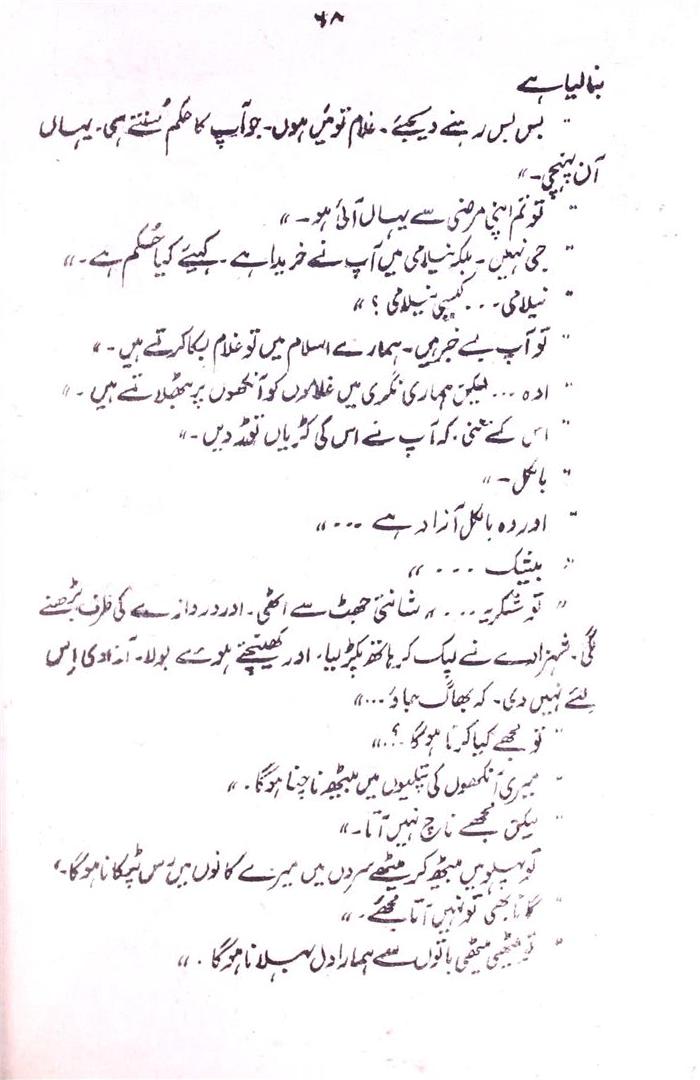 ۶۸
بنالیا ہے
" بس بس رہنے دیجئے۔ غلام تو مَیں ہوں۔ جو آپ کا حکم سُنتے ہی۔ یہاں
آن پہنچی۔"
" تو تم اپنی مرضی سے یہاں آئی ہو۔"
" جی نہیں۔ بلکہ نیلامی میں آپ نے خریدا ہے۔ کہیئے کیا حُکم ہے۔"
" نیلامی... کیسی نیلامی؟"
" تو آپ بے خبر ہیں۔ ہمارے اسلام میں تو غلام بکا کرتے ہیں۔"
" اوہ... لیکن ہماری نگری میں غلاموں کو آنکھوں پر بٹھلاتے ہیں۔"
" اس کے معنی، کہ آپ نے اس کی کڑیاں توڑ دیں۔"
" بالکل۔"
" اور وہ بالکل آزاد ہے ..."
" بیشک ..."
" تو شکریہ..." شانتی جھٹ سے اٹھی۔ اور دروازے کی طرف بڑھنے
لگی۔ شہزادے نے لپک کر ہاتھ پکڑ لیا، اور کھینچتے ہوئے بولا۔ آزادی اِس
لئے نہیں دی۔ کہ بھاگ جاؤ..."
" تو مجھے کیا کرنا ہوگا؟..."
" میری آنکھوں کی پتلیوں میں بیٹھ ناچنا ہوگا۔"
" لیکن مجھے ناچ نہیں آتا۔"
" تو پہلو میں بیٹھ کر میٹھے سروں میں میرے کانوں میں رَس ٹپکانا ہوگا۔"
" گانا بھی تو نہیں آتا مجھے۔"
" تو میٹھی میٹھی باتوں سے ہمارا دل بہلانا ہوگا۔"